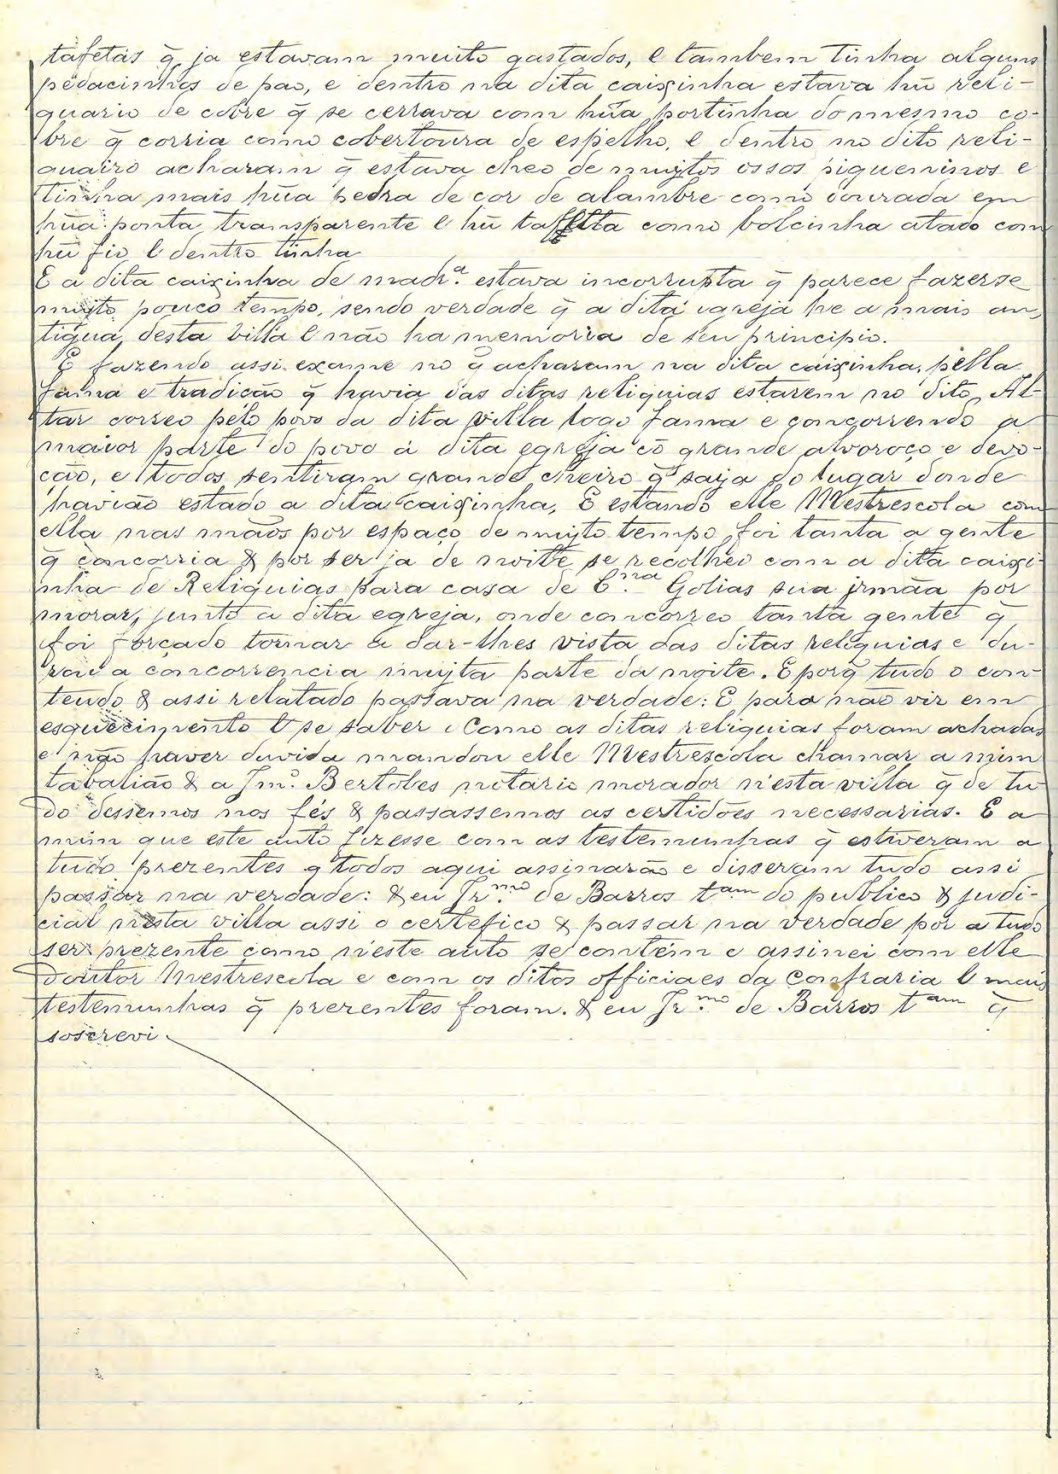 tafetás q̃ ja estavam muito gastados, e tambem tinha alguns
pedacinhos de pao, e dentro na dita caixinha estava hũ reli-
quario de cobre q̃ se cerrava com hũa portinha do mesmo co-
bre q̃ corria como cobertoura de espelho, e dentro no dito reli-
quairo acharam q̃ estava cheo de muytos ossos piqueninos e
tinha mais hũa pedra de cor de alambre como dourada em
hũa ponta transparente e hũ taffeta como bolcinha atado com
hũ fio e dentro tinha
E a dita caixinha de madrª. estava incorrupta q̃ parece fazerse
muyto pouco tempo, sendo verdade q̃ a dita igreja he a mais an
tigua desta villa e não ha memoria de seu principio.
E fazendo assi exame no q̃ acharam na dita caixinha, pella
fama e tradicão q̃ havia das ditas reliquias estarem no dito Al-
tar correo pelo povo da dita villa logo fama e concorrendo a
maior parte do povo á dita egreja cõ grande alvoroço e devo-
cão, e todos sentiram grande cheiro q̃ saya do lugar donde
havião estado a dita caixinha, E estando elle Mestrescola com
ella nas mãos por espaço de muyto tempo, foi tanta a gente
q̃ concorria & por ser ja de noite se recolheo com a dita caixi-
nha de Reliquias para casa de C.na Golias sua jrmãa por
morar junto á dita egreja, onde concorreo tanta gente q̃
foi forçado tornar a dar-lhes vista das ditas reliquias e du-
rou a concorrencia muyta parte da noite. E porq̃ tudo o con-
teudo & assi relatado passava na verdade: E para não vir em
esquecimento e se saber como as ditas reliquias foram achadas
e não haver duvida mandou elle Mestrescola chamar a mim
tabalião & a Jmº. Bertoles notario morador n'esta villa q̃ de tu-
do dessemos nos fés & passassemos as certidões necessarias. E a
mim que este auto fizesse com as testemunhas q̃ estiveram a
tudo prezentes q̃ todos aqui assinarão e disseram tudo assi
passar na verdade: & eu Jr.mo de Barros tam do publico & judi-
cial nesta villa assi o certefico & passar na verdade por a tudo
ser prezente como n'este auto se contém e assinei com elle
Doutor Mestrescola e com os ditos officiaes da Confraria e mais
testemunhas q̃ prezentes foram. & eu Jr.mo de Barros tam q̃
soscrevi.